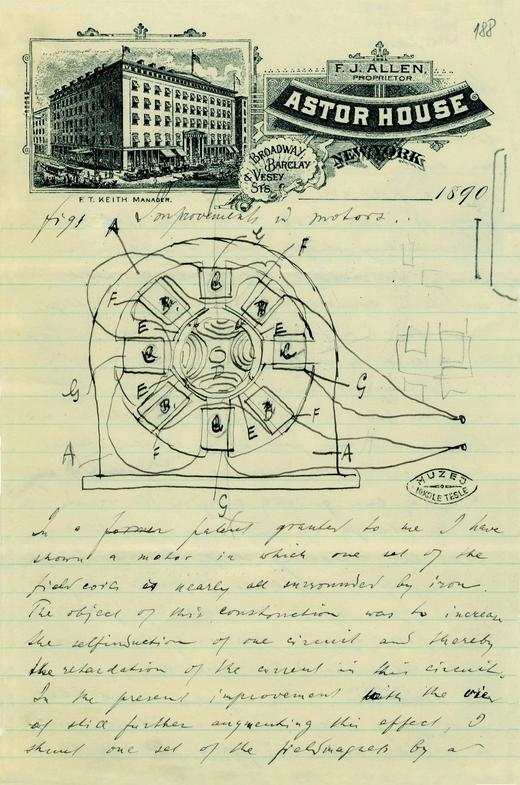 188
F. J. ALLEN,
PROPRIETOR.
ASTOR HOUSE
BROADWAY,
BARCLAY
& VESEY
STS.
NEW YORK
F. T. KEITH MANAGER.
1890
fig 1 Improvements in motors..
A G F
B
F B B
E E
B B
G G
E E
B B F
A F B A
G
MUZEJ
NIKOLE TESLE
In a former patent granted to me I have
shown a motor in which one set of the
field coils is nearly all surrounded by iron.
The object of this construction was to increase
the selfinduction of one circuit and thereby
the retardation of the current in this circuit.
In the present improvement with the view
of still further augmenting this effect, I
shunt one set of the fieldmagnets by a